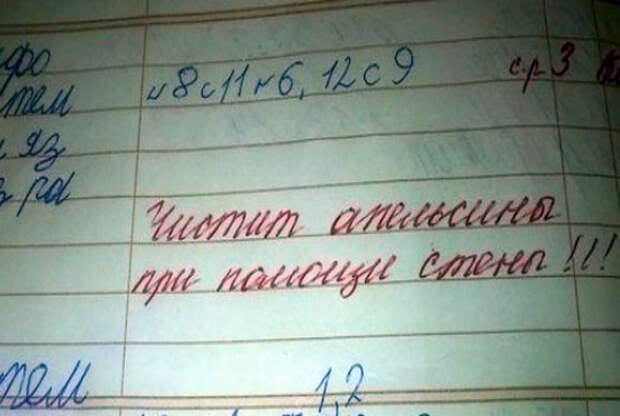 тем № 8 с 11 № 6, 12 с 9 с.р 3
яз
Чистит апельсины
при помощи стены!!!
тем 1,2